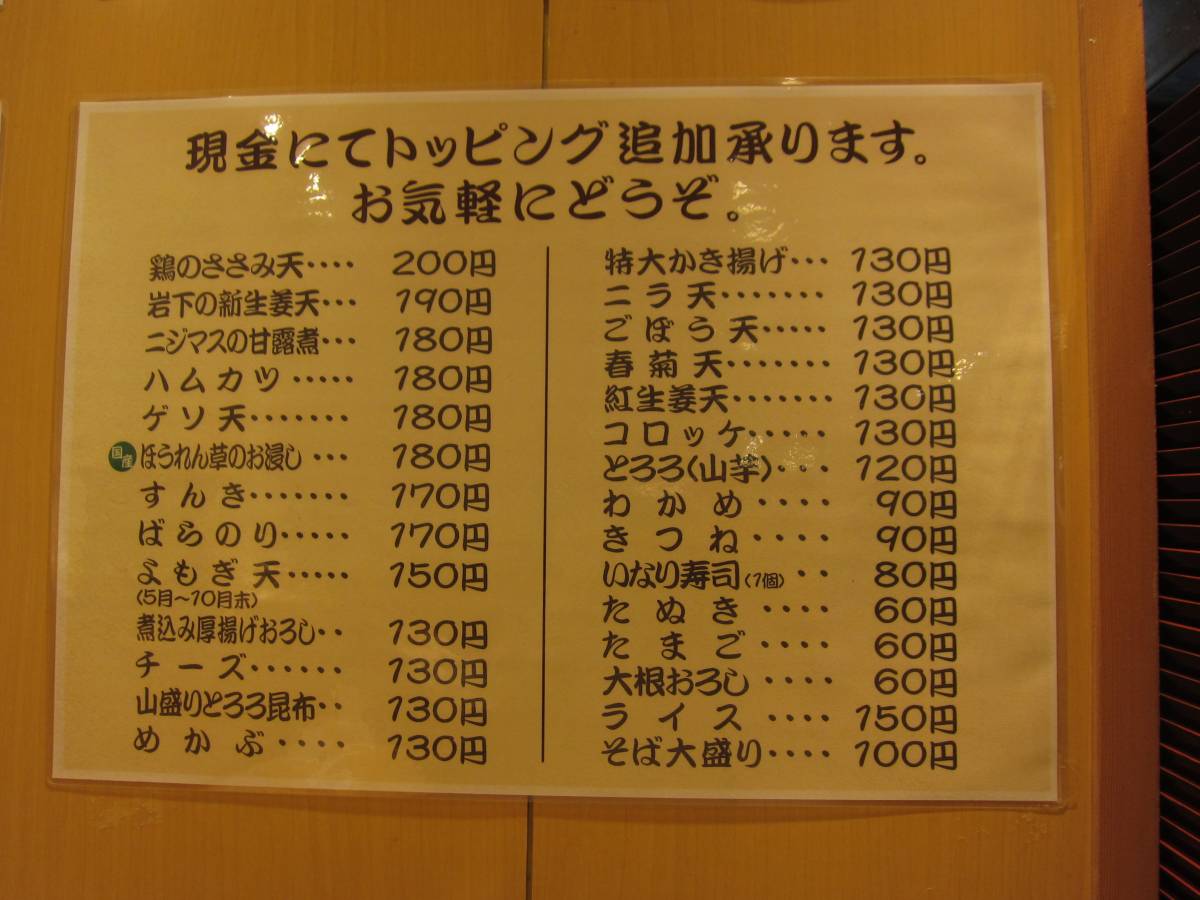 現金にてトッピング追加承ります。
お気軽にどうぞ。
鶏のささみ天････ 200円
岩下の新生姜天･･･ 190円
ニジマスの甘露煮･･･ 180円
ハムカツ ･････ 180円
ゲソ天･･･････ 180円
国産 ほうれん草のお浸し ･･･ 180円
すんき･･･････ 170円
ばらのり･････ 170円
よもぎ天･････ 150円
(5月～10月末)
煮込み厚揚げおろし･･ 130円
チーズ･･････ 130円
山盛りとろろ昆布･･ 130円
めかぶ････ 130円
特大かき揚げ･･･ 130円
ニラ天･･･････ 130円
ごぼう天･････ 130円
春菊天･･･････ 130円
紅生姜天･･･････ 130円
コロッケ･････ 130円
とろろ(山芋)･･･ 120円
わかめ････ 90円
きつね････ 90円
いなり寿司(1個)･･ 80円
たぬき････ 60円
たまご････ 60円
大根おろし････ 60円
ライス････ 150円
そば大盛り････ 100円